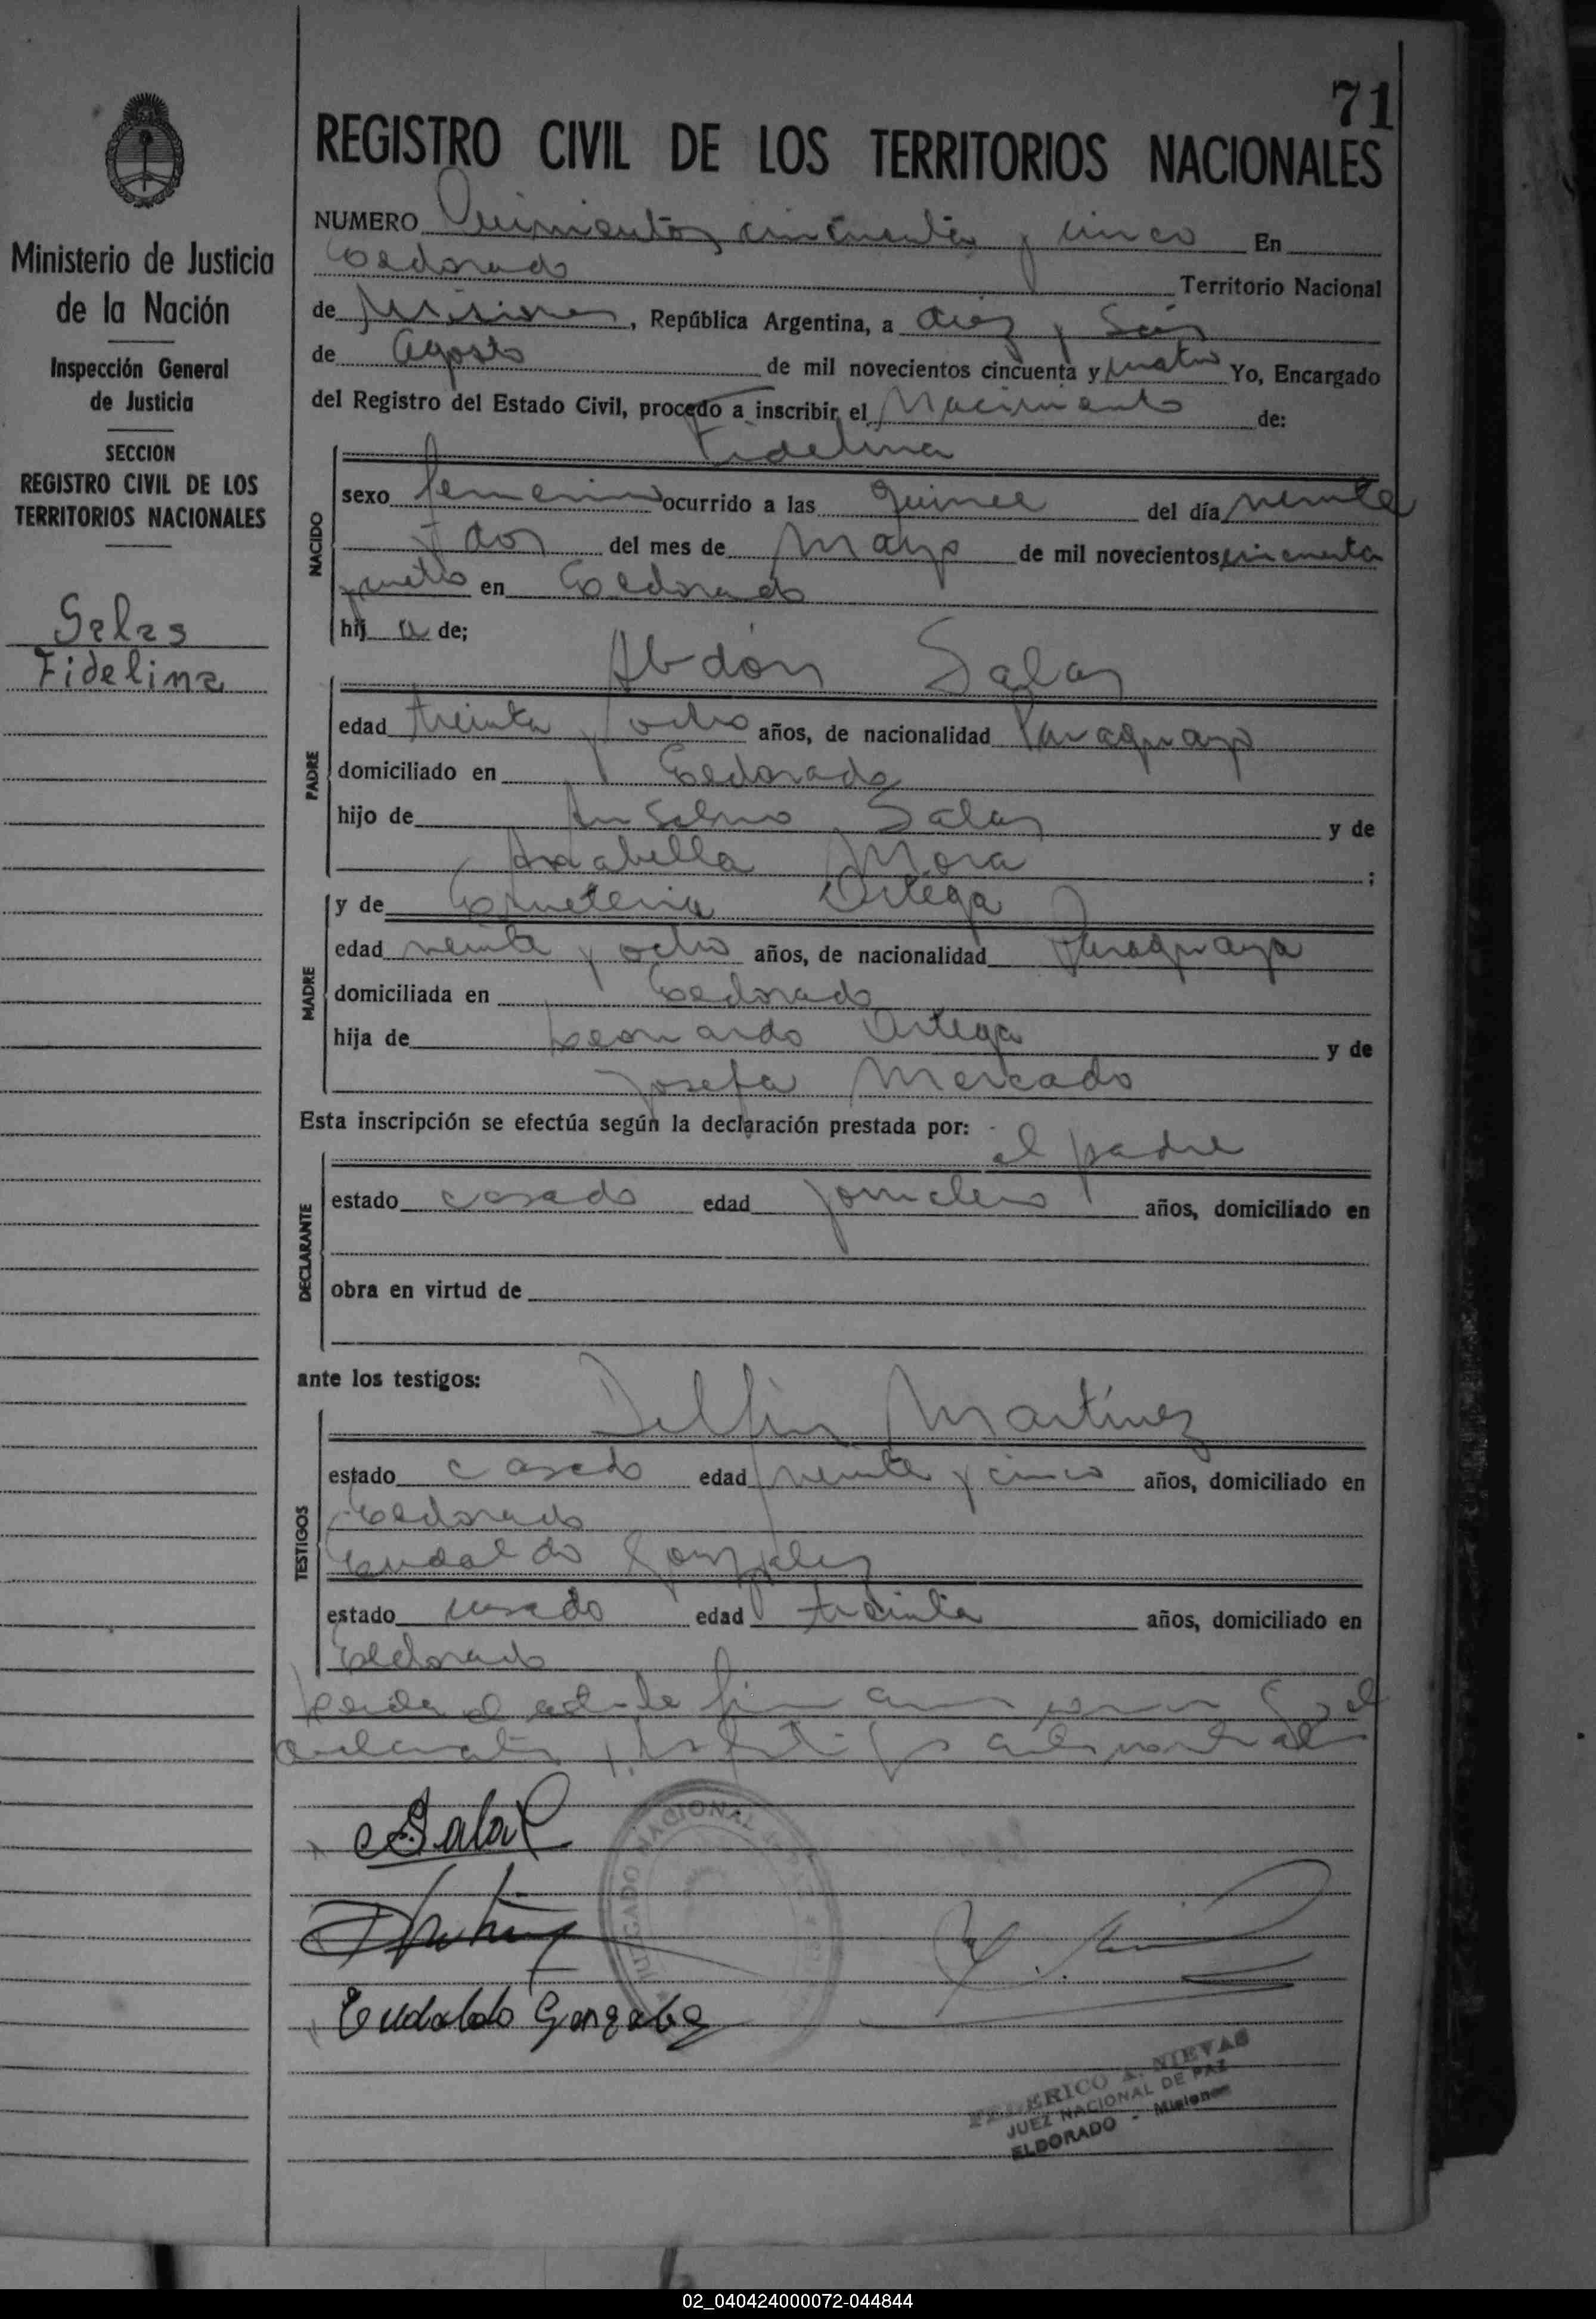 71
REGISTRO CIVIL DE LOS TERRITORIOS NACIONALES
Ministerio de Justicia
de la Nación
Inspección General
de Justicia
SECCION
REGISTRO CIVIL DE LOS
TERRITORIOS NACIONALES
Salas
Fidelina
NUMERO Quinientos cincuenta y cinco En
Eldorado Territorio Nacional
de Misiones, República Argentina, a diez y Seis
de Agosto de mil novecientos cincuenta y cuatro Yo, Encargado
del Registro del Estado Civil, procedo a inscribir el Nacimiento de:
Fidelina
NACIDO
sexo femenino ocurrido a las quince del día veinte
y dos del mes de Mayo de mil novecientos cincuenta
y cuatro en Eldorado
hij a de;
Abdón Salas
PADRE
edad treinta y ocho años, de nacionalidad Paraguayo
domiciliado en Eldorado
hijo de Anselmo Salas y de
Mora ;
MADRE
y de Ortega
edad veinte y ocho años, de nacionalidad Paraguaya
domiciliada en Eldorado
hija de Leonardo Ortega y de
Josefa Mercado
Esta inscripción se efectúa según la declaración prestada por: el padre
DECLARANTE
estado casado edad jornalero años, domiciliado en
obra en virtud de
ante los testigos:
Delfin Martínez
TESTIGOS
estado casado edad veinte y cinco años, domiciliado en
Eldorado
Eudaldo Gonzalez
estado casado edad treinta años, domiciliado en
Eldorado
Leida el acta la
Salas
JUZGADO NACIONAL
Eudaldo Gonzalez
FEDERICO A. NIEVAS
JUEZ NACIONAL DE PAZ
ELDORADO - Misiones
02_040424000072-044844